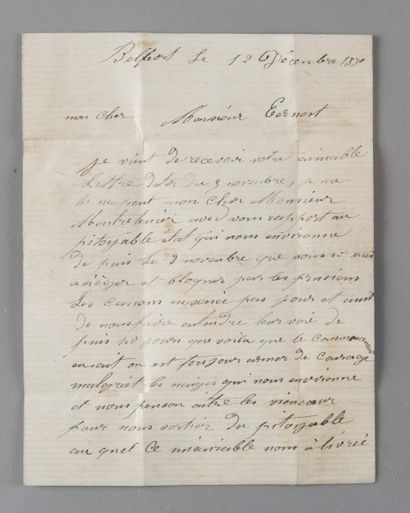 Belfort le 12 Décembre 1870
mon cher Monsieur Ernest
je vient de recevoir votre aimable
lettre dater du 3 novembre, je me
ne peut mon cher Monsieur
avec vous rapport au
pitoyable état qui nous environne
de puis le 3 novembre que nous
asiéger et bloquer par les prusiens
Les canons pas jour et nuit
de nous faire entendre leur voie de
puis 40 jours que voila que le
on est toujours armer de courage
malgrét les qui nous environne
et nous penson aitre les
pour nous sortir du pitoyable
au quel ce misérable nous à livréé